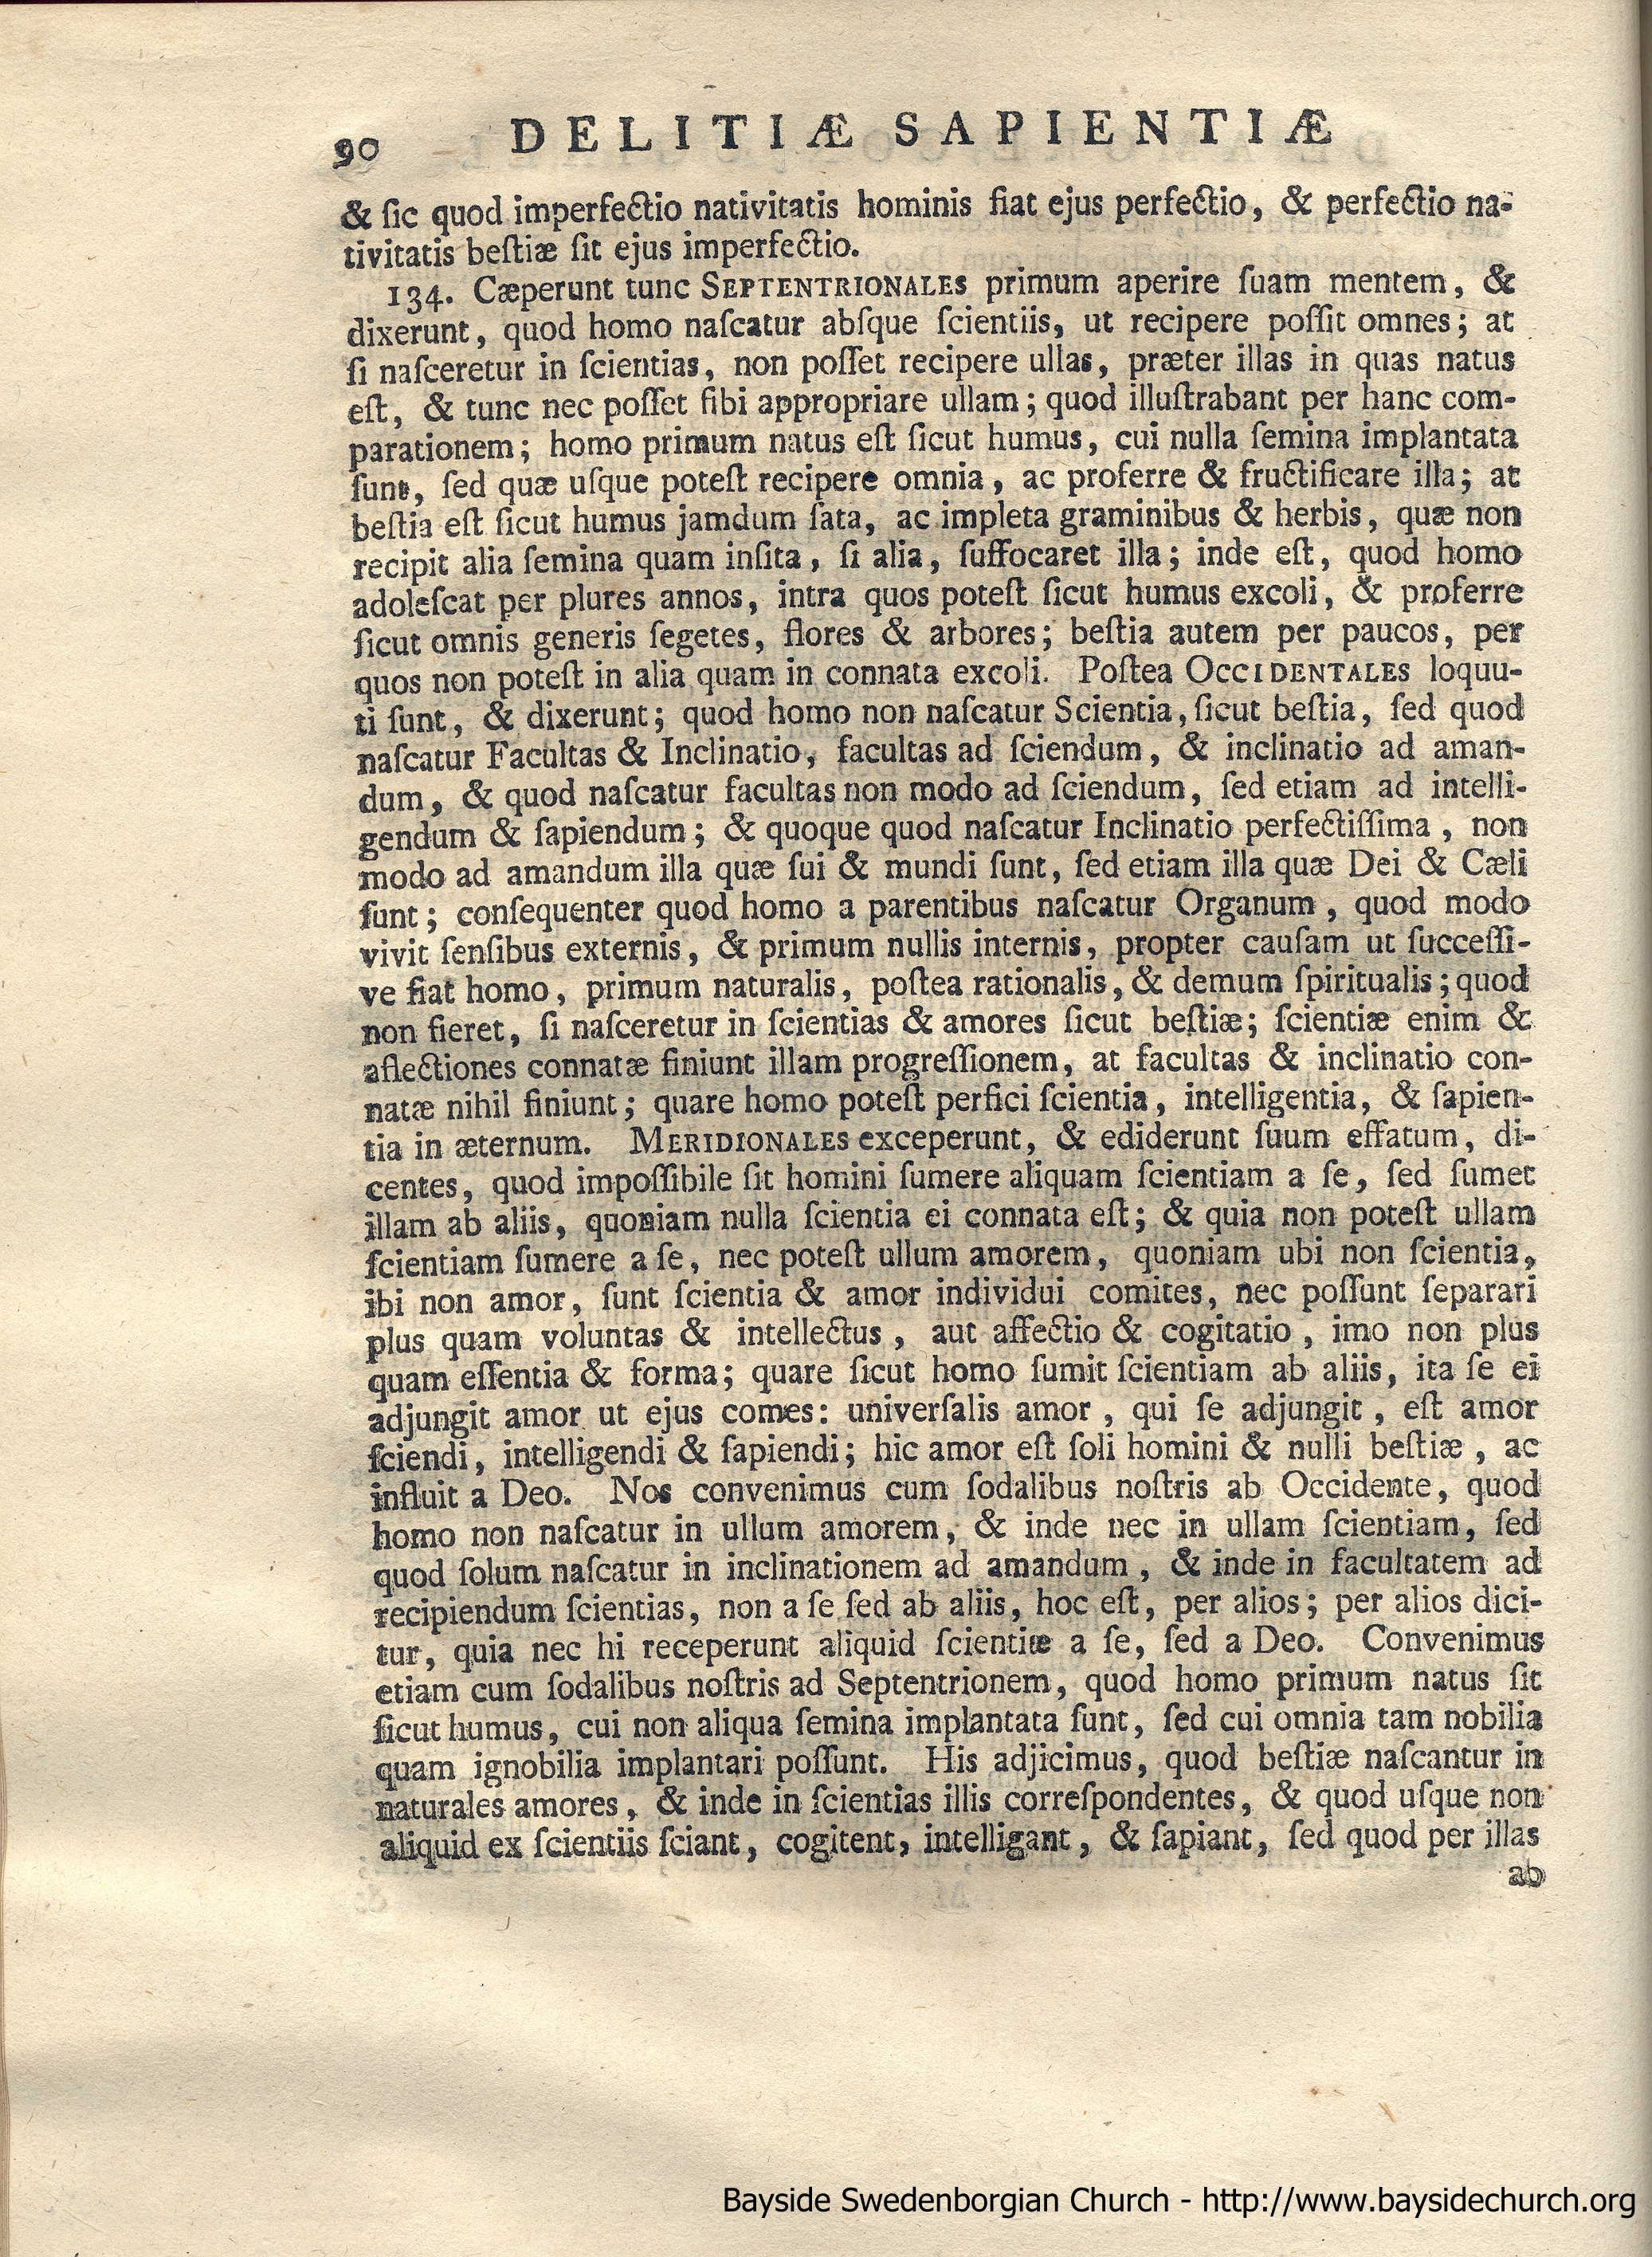 90 DELITIÆ SAPIENTIÆ
& ſic quod imperfectio nativitatis hominis fiat ejus perfectio, & perfectio na-
tivitatis beſtiæ ſit ejus imperfectio.
134. Cæperunt tunc SEPTENTRIONALES primum aperire ſuam mentem, &
dixerunt, quod homo naſcatur abſque ſcientiis, ut recipere poſſit omnes; at
ſi naſceretur in ſcientias, non poſſet recipere ullas, præter illas in quas natus
eſt, & tunc nec poſſet ſibi appropriare ullam; quod illuſtrabant per hanc com-
parationem; homo primum natus eſt ſicut humus, cui nulla ſemina implantata
ſunt, ſed quæ uſque poteſt recipere omnia, ac proferre & fructificare illa; at
beſtia eſt ſicut humus jamdum ſata, ac impleta graminibus & herbis, quæ non
recipit alia ſemina quam inſita, ſi alia, ſuffocaret illa; inde eſt, quod homo
adoleſcat per plures annos, intra quos poteſt ſicut humus excoli, & proferre
ſicut omnis generis ſegetes, flores & arbores; beſtia autem per paucos, per
quos non poteſt in alia quam in connata excoli. Poſtea OCCIDENTALES loquu-
ti ſunt, & dixerunt; quod homo non naſcatur Scientia, ſicut beſtia, ſed quod
naſcatur Facultas & Inclinatio, facultas ad ſciendum, & inclinatio ad aman-
dum, & quod naſcatur facultas non modo ad ſciendum, ſed etiam ad intelli-
gendum & ſapiendum; & quoque quod naſcatur Inclinatio perfectiſſima, non
modo ad amandum illa quæ ſui & mundi ſunt, ſed etiam illa quæ Dei & Cæli
ſunt; conſequenter quod homo a parentibus naſcatur Organum, quod modo
vivit ſenſibus externis, & primum nullis internis, propter cauſam ut ſucceſſi-
ve fiat homo, primum naturalis, poſtea rationalis, & demum ſpiritualis; quod
non fieret, ſi naſceretur in ſcientias & amores ſicut beſtiæ; ſcientiæ enim &
affectiones connatæ finiunt illam progreſſionem, at facultas & inclinatio con-
natæ nihil finiunt; quare homo poteſt perfici ſcientia, intelligentia, & ſapien-
tia in æternum. MERIDIONALES exceperunt, & ediderunt ſuum effatum, di-
centes, quod impoſſibile ſit homini ſumere aliquam ſcientiam a ſe, ſed ſumet
illam ab aliis, quoniam nulla ſcientia ei connata eſt; & quia non poteſt ullam
ſcientiam ſumere a ſe, nec poteſt ullum amorem, quoniam ubi non ſcientia,
ibi non amor, ſunt ſcientia & amor individui comites, nec poſſunt ſeparari
plus quam voluntas & intellectus, aut affectio & cogitatio, imo non plus
quam eſſentia & forma; quare ſicut homo ſumit ſcientiam ab aliis, ita ſe ei
adjungit amor ut ejus comes: univerſalis amor, qui ſe adjungit, eſt amor
ſciendi, intelligendi & ſapiendi; hic amor eſt ſoli homini & nulli beſtiæ, ac
influit a Deo. Nos convenimus cum ſodalibus noſtris ab Occidente, quod
homo non naſcatur in ullum amorem, & inde nec in ullam ſcientiam, ſed
quod ſolum naſcatur in inclinationem ad amandum, & inde in facultatem ad
recipiendum ſcientias, non a ſe ſed ab aliis, hoc eſt, per alios; per alios dici-
tur, quia nec hi receperunt aliquid ſcientiæ a ſe, ſed a Deo. Convenimus
etiam cum ſodalibus noſtris ad Septentrionem, quod homo primum natus ſit
ſicut humus, cui non aliqua ſemina implantata ſunt, ſed cui omnia tam nobilia
quam ignobilia implantari poſſunt. His adjicimus, quod beſtiæ naſcantur in
naturales amores, & inde in ſcientias illis correſpondentes, & quod uſque non
aliquid ex ſcientiis ſciant, cogitent, intelligant, & ſapiant, ſed quod per illas
ab
Bayside Swedenborgian Church - http://www.baysidechurch.org